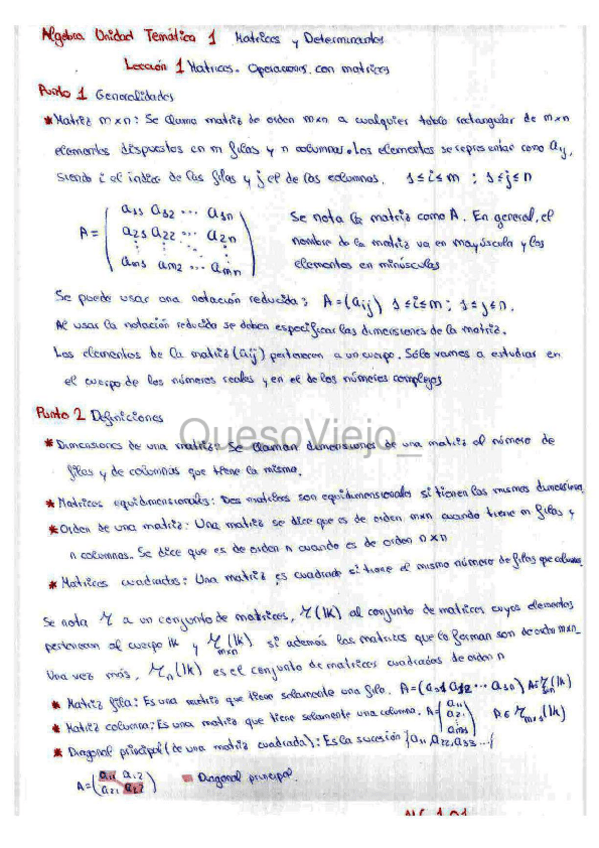 Algebra Unidad Temática 1 Matrices y Determinantes
Lección 1 Matrices. Operaciones con matrices
Punto 1 Generalidades
* Matriz m×n: Se llama matriz de orden m×n a cualquier tabla rectangular de m×n
elementos dispuestos en m filas y n columnas. Los elementos se representan como aij,
siendo i el índice de las filas y j el de las columnas. 1≤i≤m ; 1≤j≤n
A = ( a11 a12 ... a1n
a21 a22 ... a2n
am1 am2 ... amn )
Se nota la matriz como A. En general, el
nombre de la matriz va en mayúscula y los
elementos en minúsculas
Se puede usar una notación reducida: A=(aij) 1≤i≤m ; 1≤j≤n.
Al usar la notación reducida se deben especificar las dimensiones de la matriz.
Los elementos de la matriz (aij) pertenecen a un cuerpo. Sólo vamos a estudiar en
el cuerpo de los números reales y en el de los números complejos
Punto 2 Definiciones
QuesoViejo_
* Dimensiones de una matriz: Se llaman dimensiones de una matriz al número de
filas y de columnas que tiene la misma.
* Matrices equidimensionales: Dos matrices son equidimensionales si tienen las mismas dimensiones.
* Orden de una matriz: Una matriz se dice que es de orden m×n cuando tiene m filas y
n columnas. Se dice que es de orden n cuando es de orden n×n
* Matrices cuadradas: Una matriz es cuadrada si tiene el mismo número de filas que columnas.
Se nota M a un conjunto de matrices, M(IK) al conjunto de matrices cuyos elementos
pertenecen al cuerpo IK y Mm×n(IK) si además las matrices que lo forman son de orden m×n.
Una vez más, Mn(IK) es el conjunto de matrices cuadradas de orden n
* Matriz fila: Es una matriz que tiene solamente una fila. A=(a11 a12 ... a1n) A∈M1×n(IK)
* Matriz columna: Es una matriz que tiene solamente una columna. A=( a11 a21 ... am1 ) A∈Mm×1(IK)
* Diagonal principal (de una matriz cuadrada): Es la sucesión {a11, a22, a33 ...}
A=( a11 a12
a21 a22 ) Diagonal principal.